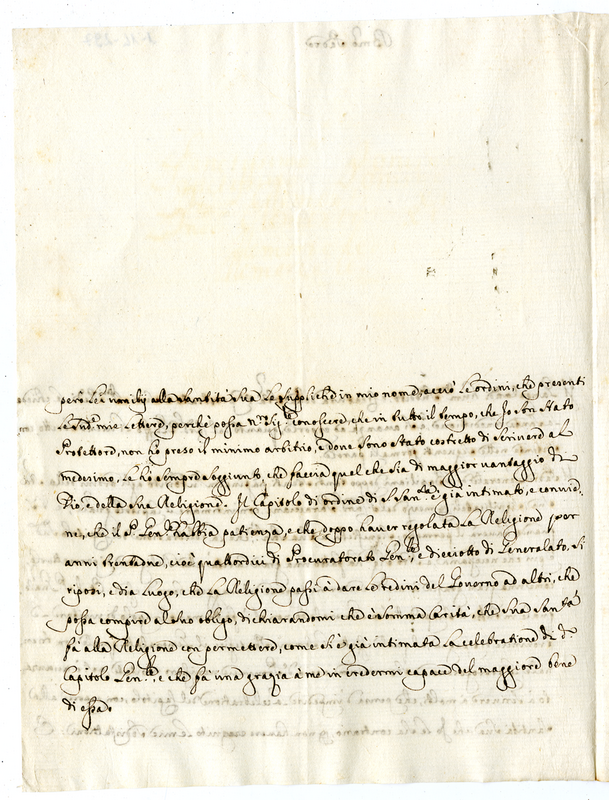 però le umilij alla Santità Sua le suppliche in mio nome, acciò le ordini, che presenti
le sud.e mie lettere, perche possa n.ro Sig.re conoscere, che in tutto il tempo, che Io son stato
Protettore, non hò preso il minimo arbitrio, e dove sono stato costretto di scrivere al
medesimo, le hò sempre soggiunto, che faccia quel che sia di maggior vantaggio di
Dio, e della sua Religione. Il Capitolo di ordine di S. San.tà è già intimato, e convie-
ne, che il P. Gen.le habbia patienza, e che doppo haver regolata la Religione per
anni trentadue, cioè quattordici di Procuratorato Gen.le, e dieciotto di Generalato, si
riposi, e dia luogo, che la Religione passi à dare le redini del Governo ad altri, che
possa compire al suo obligo, dichiarandomi che è somma carità, che Sua San.tà
fà alla Religione con permettere, come si è già intimata la celebratione di d.o
Capitolo Gen.le, e che fà una grazia à me in credermi capace del maggiore bene
di essa